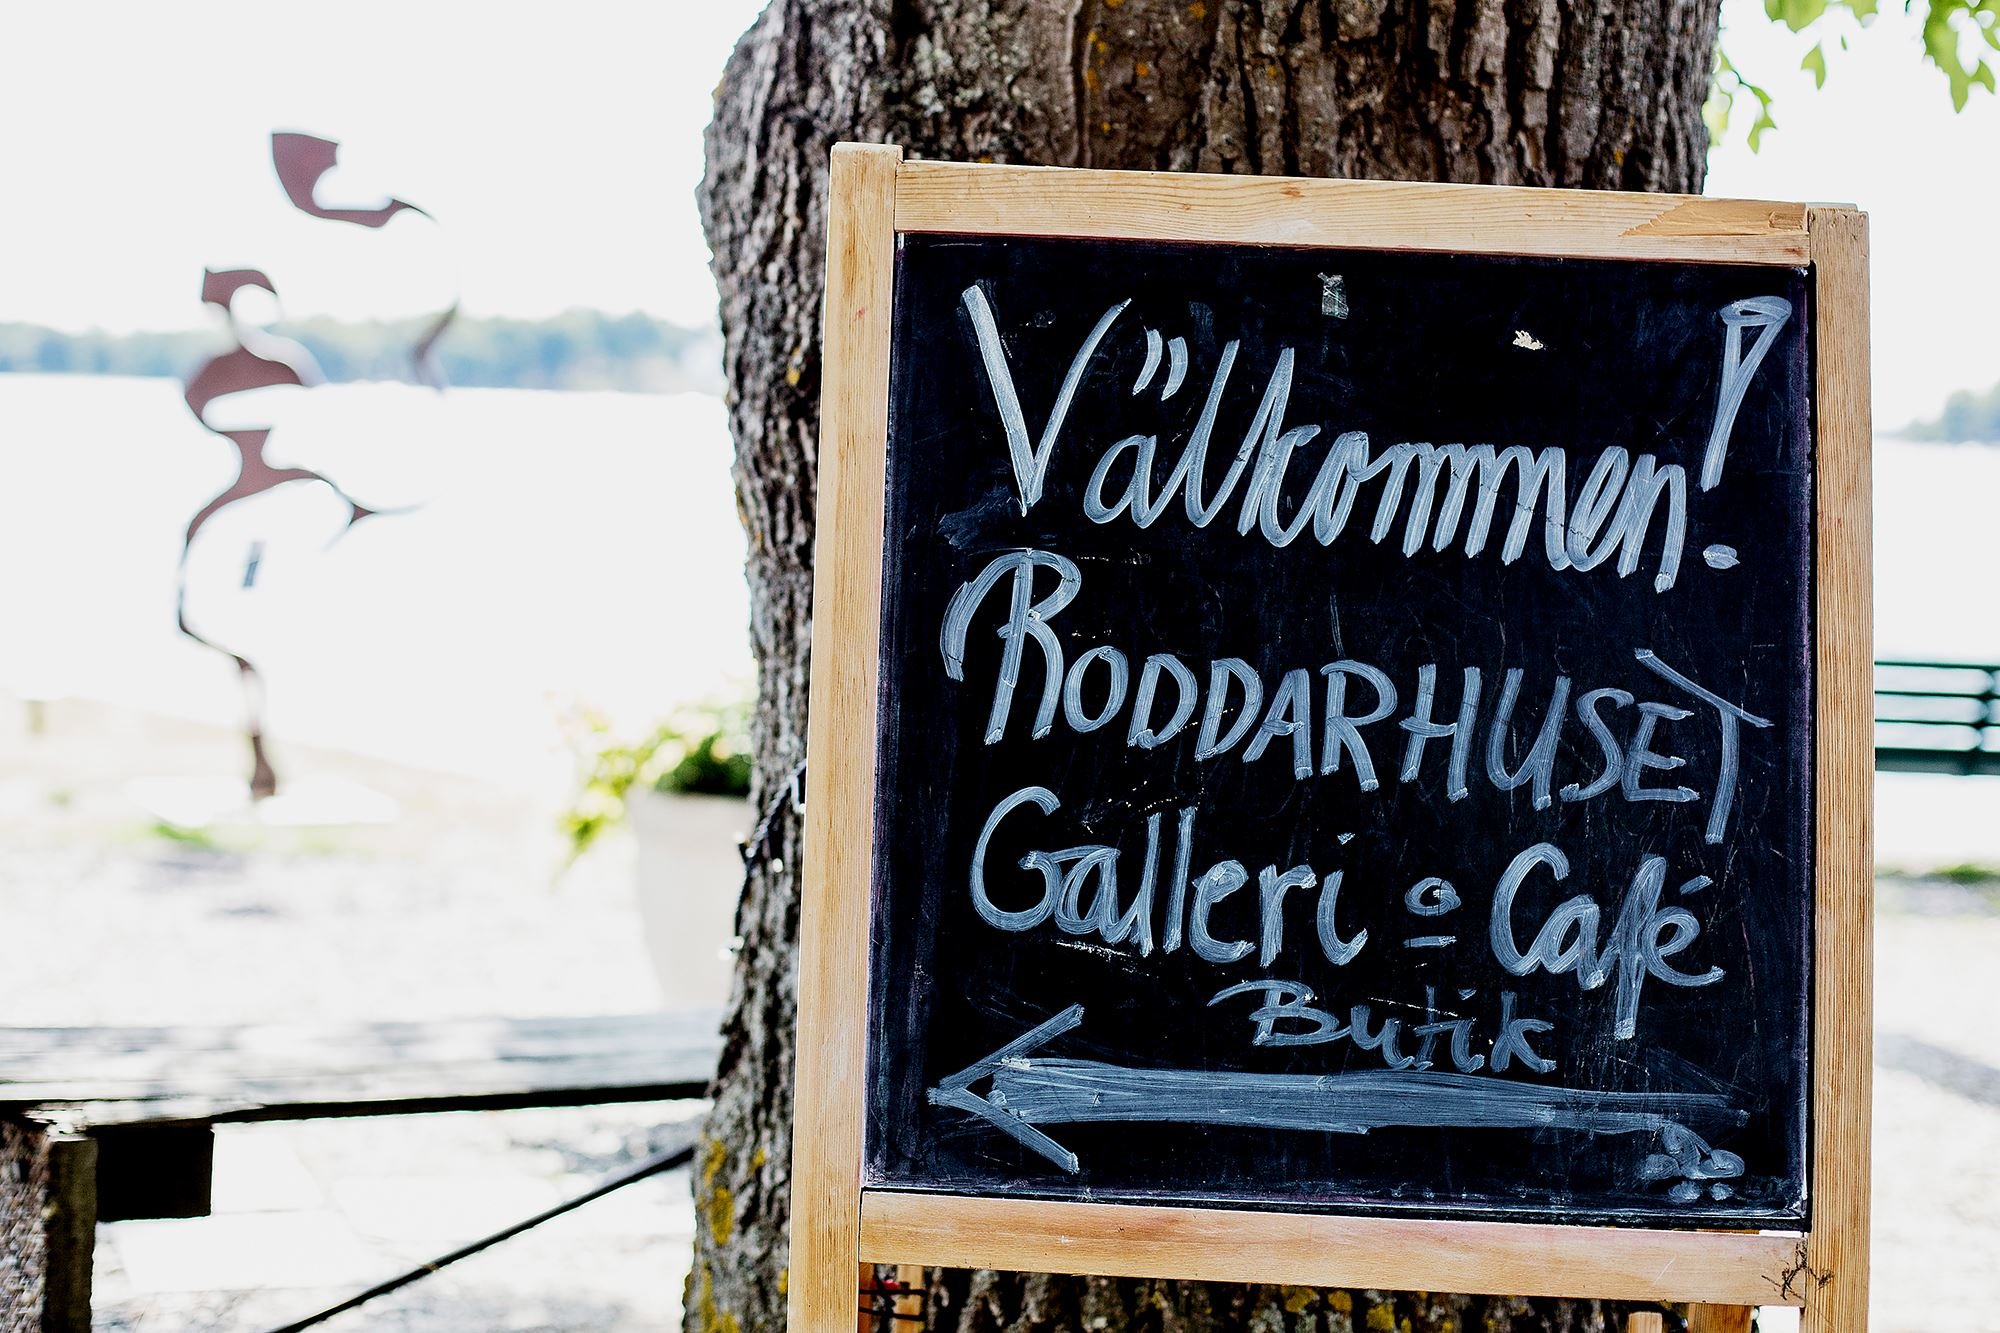 Välkommen!
RODDARHUSET
Galleri o Café
Butik